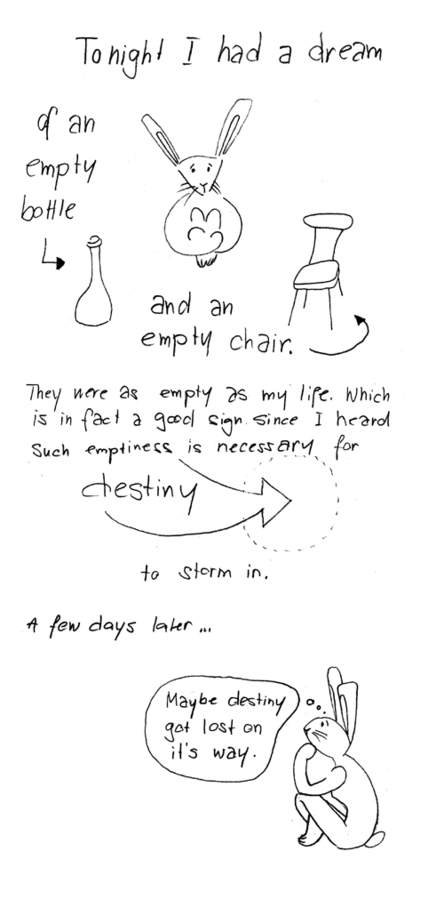 Tonight I had a dream
of an
empty
bottle
and an
empty chair.
They were as empty as my life. Which
is in fact a good sign since I heard
such emptiness is necessary for
destiny
to storm in.
A few days later...
Maybe destiny
got lost on
it's way.